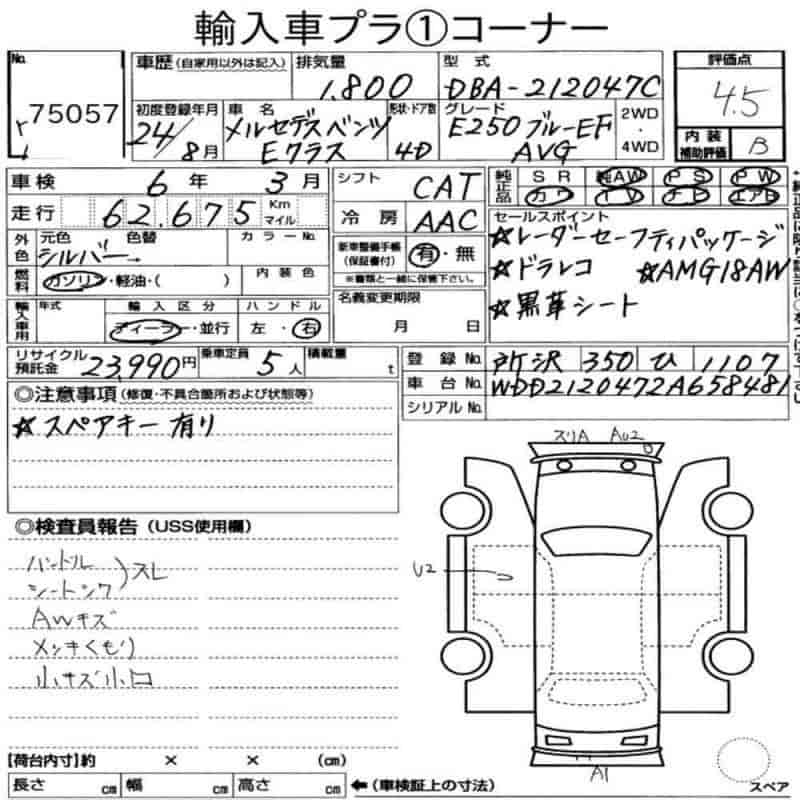 輸入車プラ①コーナー
No.
75057
車歴 (自家用以外は記入)
排気量
1.800
型式
DBA-212047C
評価点
4.5
初度登録年月
24/8月
車名
メルセデスベンツ
Eクラス
形状・ドア数
4D
グレード
E250ブルーEF
AVG
2WD
・
4WD
内装
補助評価
B
車検 6年 3月
シフト CAT
純正品
SR 純AW PS PW
カワ TV ナビ エアB
走行 62.675 Km マイル
冷房 AAC
セールスポイント
☆レーダーセーフティパッケージ
☆ドラレコ ☆AMG18AW
☆黒革シート
外色 元色 色替 カラーNo.
シルバー→
新車整備手帳
(保証書付)
有・無
※書類と一緒に保管下さい。
燃料 ガソリン・軽油・( ) 内装色
名義変更期限
月 日
輸入車用 年式 輸入区分 ハンドル
ディーラー・並行 左・右
リサイクル
預託金
23,990円 乗車定員 5人 積載量 t
登録No. 所沢 350 ひ 1107
車台No. WDD2120472A658481
シリアルNo.
◎注意事項 (修復・不具合箇所および状態等)
☆スペアキー有り
スリA AU2
◎検査員報告 (USS使用欄)
ハンドル
シートシワ
スレ
AWキズ
メッキくもり
小キズ小凹
U2
A1
スペア
【荷台内寸】約 × × (cm)
長さ cm 幅 cm 高さ cm ←(車検証上の寸法)